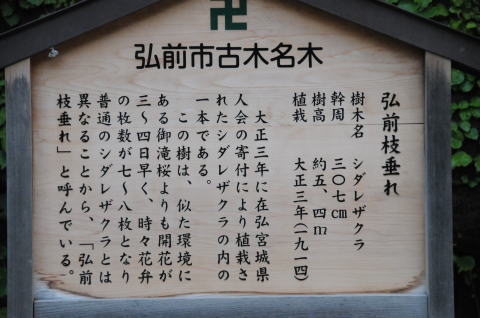 卍
弘前市古木名木
弘前枝垂れ
樹木名 シダレザクラ
幹周 三〇七cm
樹高 約五、四m
植栽 大正三年(一九一四)
大正三年に在弘宮城県
人会の寄付により植栽さ
れたシダレザクラの内の
一本である。
この樹は、似た環境に
ある御滝桜よりも開花が
三~四日早く、時々花弁
の枚数が七~八枚となり
普通のシダレザクラとは
異なることから、「弘前
枝垂れ」と呼んでいる。